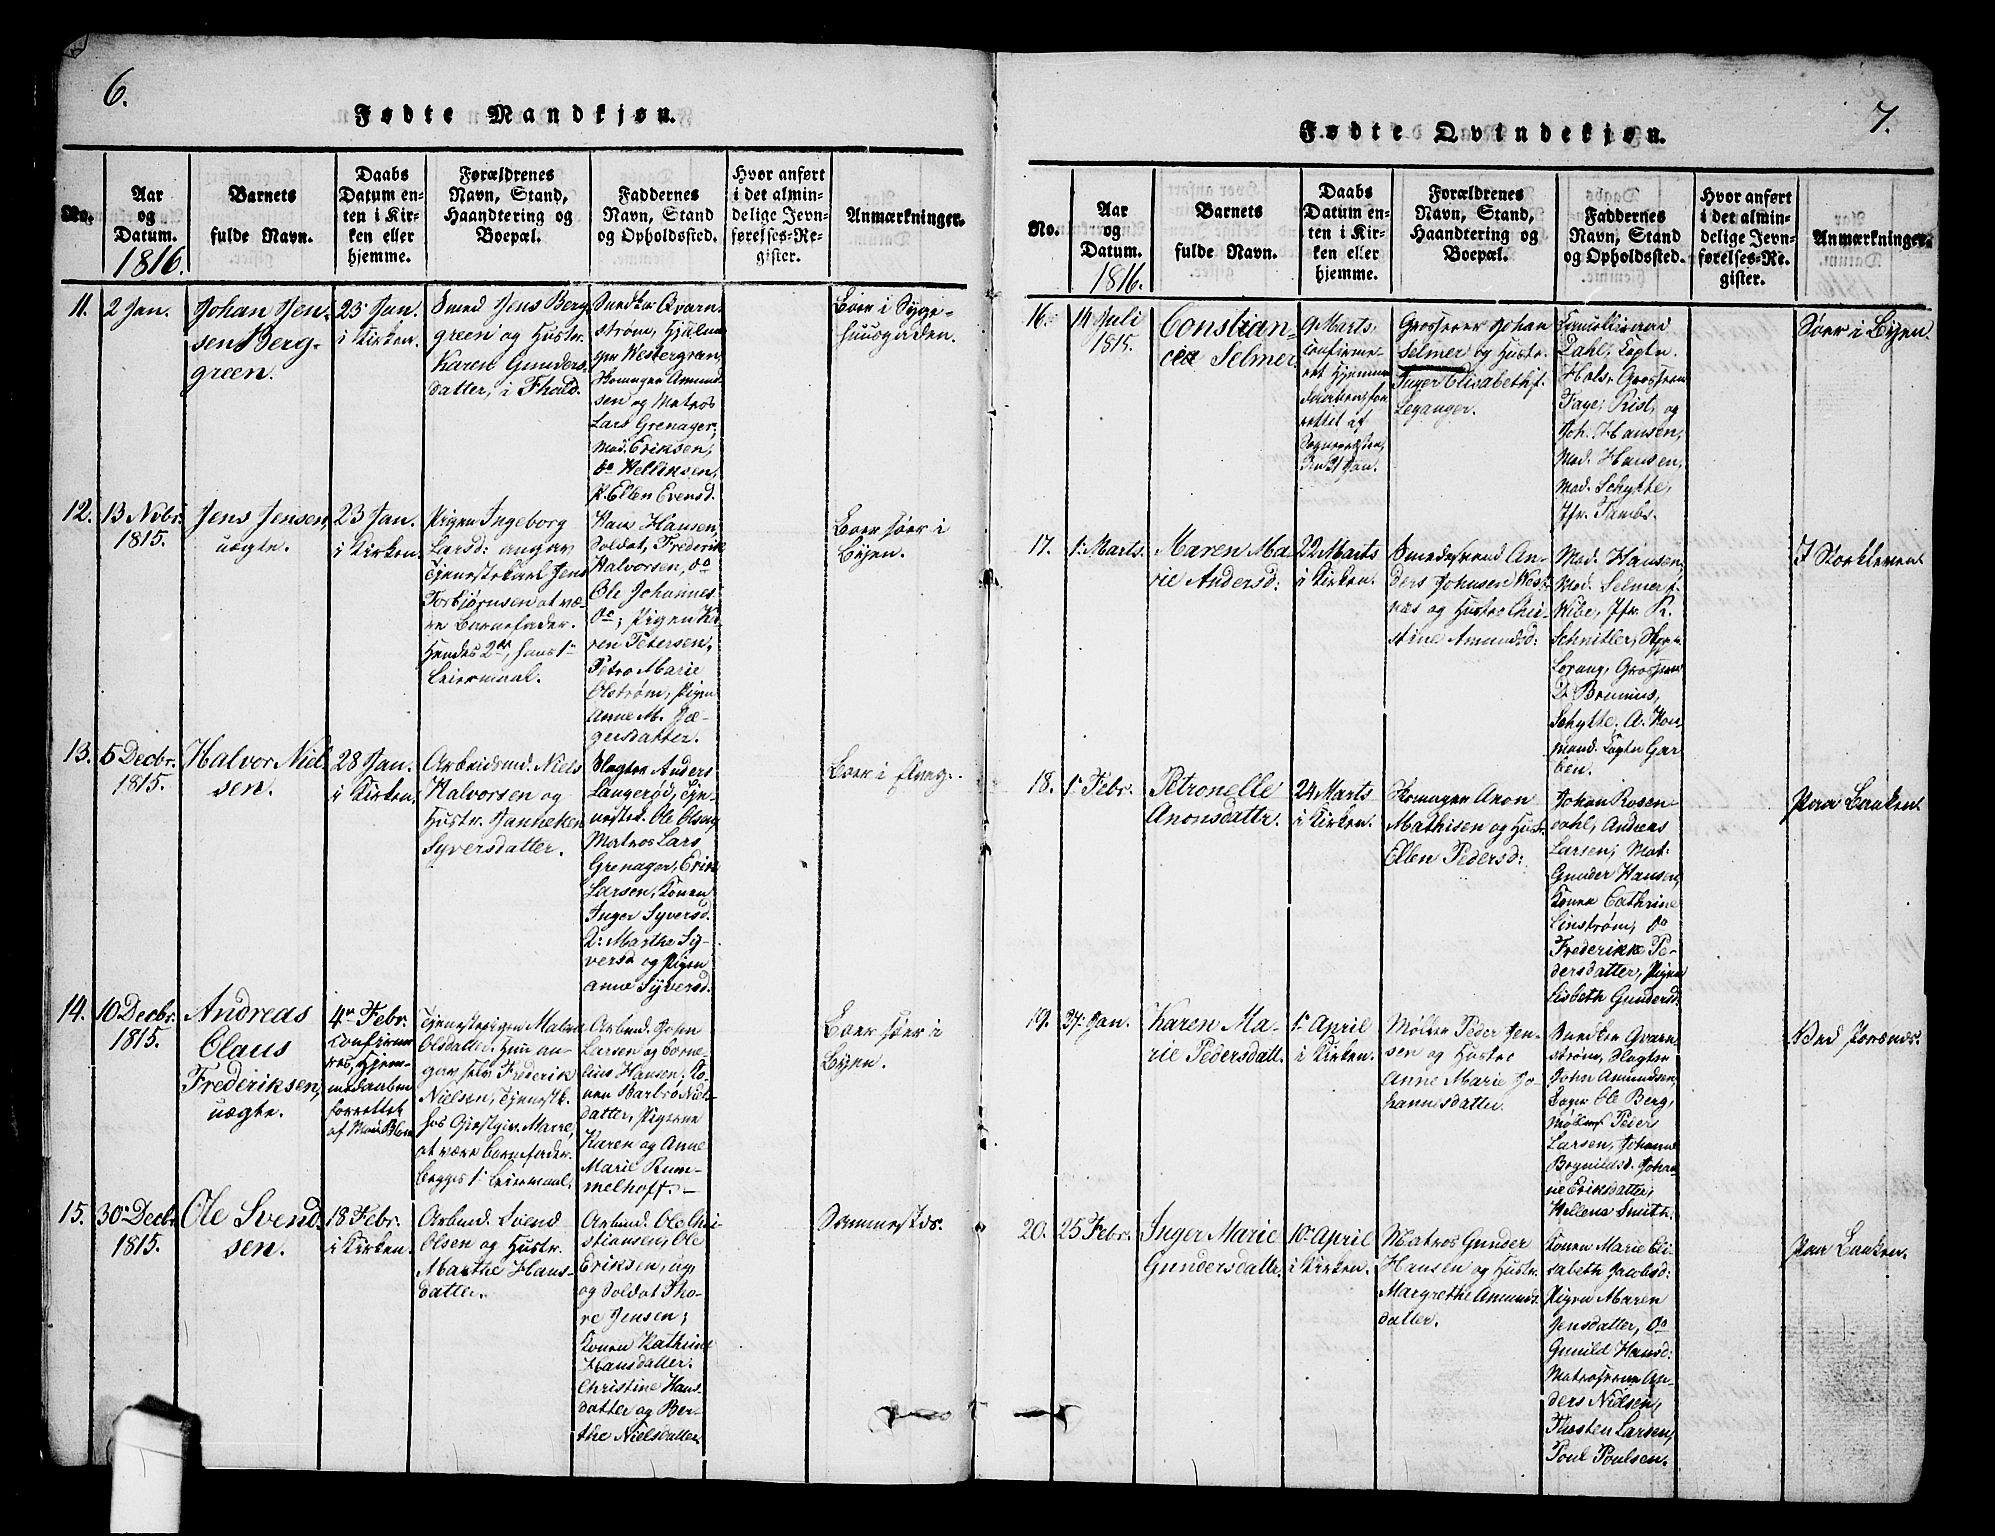 6.
Fødte Mandkjøn.
No.
Aar
og
Datum.
1816.
Barnets
fulde Navn.
Daabs
Datum en-
ten i Kir-
ken eller
hjemme.
Forældrenes
Navn, Stand,
Haandtering og
Boepæl.
Faddernes
Navn, Stand
og Opholdssted.
Hvor anført
i det almin-
delige Jevn-
førelses-Re-
gister.
Anmærkninger.
11.
2 Jan.
Johan Jen-
sen Berg-
green.
23 Jan.
i Kirken.
Smed Jens Berg
green og Hustr.
Karen Gunders
datter, i Fhald.
Snedker Qvarn-
strøm, Hjulma
ger Westergren,
Skomager Amund
sen og Matros
Lars Grenager;
Mad. Eriksen,
do Hellesen,
P. Ellen Evensd.
Boer i Syge-
huusgaden.
12.
13 Nvbr.
1815.
Jens Jensen,
uægte.
23 Jan.
i Kirken.
Pigen Ingeborg
Larsd: angav
Tjenestekarl Jens
Torbjørnsen at væ-
re Barnefader.
Hendes 2det, hans 1te
Leiermaal.
Hans Hansen,
Soldat, Frederik
Halvorsen, do
Ole Johannes
do; Pigen Ka-
ren Petersen,
Petro Marie
Olstrøm, Pigen
Anne M. Jæ-
gersdatter.
Boer her i
Byen.
13.
5 Decbr.
1815.
Halvor Niel
sen.
28 Jan.
i Kirken.
Arbeidsmd. Niels
Halvorsen og
Hustr. Janneken
Syversdatter.
Slagter Anders
Langerød, Tje-
nested. Ole Olsen,
Matros Lars
Grenager, Erik
Larsen, Konen
Inger Syversd.
K: Marthe Sy-
versd og Pigen
Anne Syversd.
14.
10 Decbr.
1815.
Andreas
Olaus
Frederiksen,
uægte.
4de Febr.
confirme-
res, Hjem-
medaaben
forrettet
af
Tjenestepigen Malene
Olsdatter. Hun an-
gav selv Frederik
Nielsen, Tjenestk.
hos Gjestgiv. Marre,
at være Barnefader.
begges 1te Leiermaal.
Arbmd. John
Larsen og Corne-
lius Hansen. Ko-
nen Barbro Niels
datter, Pigerne
Karen og Anne
Marie Rum-
melhoff.
Boer her i
Byen.
15.
30 Decbr.
1815.
Ole Svend
sen.
18 Febr.
i Kirken.
Arbmd. Svend
Olsen og Hustr.
Marthe Hans-
datter.
Arbmd. Ole Chri
stiansen, Ole
Eriksen, ug,
og Soldat Tho-
re Jensen;
Konen Kathrine
Hansdatter.
Christine Hans
datter og Ber-
the Nielsdatter.
7.
Fødte Qvindekjøn.
No.
Aar
og
Datum.
1816.
Barnets
fulde Navn.
Daabs
Datum en-
ten i Kir-
ken eller
hjemme.
Forældrenes
Navn, Stand,
Haandtering og
Boepæl.
Faddernes
Navn, Stand
og Opholdssted.
Hvor anført
i det almin-
delige Jevn-
førelses-Re-
gister.
Anmærkninger.
16.
14 Juli
1815.
Constian-
cia Selmer.
9 Marts,
confirme-
ret Hjemme
daaben, for
rettet af
Sognepræsten,
den 21 Jan.
Grosserer Johan
Selmer og Hustr.
Inger Elisabeth f.
Leganger.
Dahl, Captn.
Hals, Grosserer
Faye, Rist, og
Joh. Hansen,
Mad. Hansen,
Mad. Schytte,
Jfr. Tambs.
Boer i Byen.
17.
1 Marts.
Maren Ma-
rie Andersd:
22 Marts
i Kirken.
Smedesvend An-
ders Johnsen West
nes og Hustro Chri-
stine Amundsd:
Mad. Hansen,
Mad. Selmer f.
Wibe, Jfr. R.
Schnitler, Skpr.
Lorang, Grosserer
D. Brunius,
Schytte. A. Kor
Captn Gar
ben.
18.
1 Febr.
Petronelle
Aronsdattr.
24 Marts
i Kirken.
Skomager Aron
Mathisen og Hustr.
Ellen Pedersd:
Johan Rosen-
dahl, Andreas
Larsen, Mat:
Gunder Hansen,
Konen Cathrine
Linstrøm, do
Frederikke Pe-
dersdatter, Pigen
Lisbeth Gundersd:
Paa Banken.
19.
27 Jan.
Karen Ma-
rie Pedersdatt.
1 April
i Kirken.
Møller Peder Jen-
sen og Hustro
Anne Marie Jo-
hannesdatter.
Snedker Qvarn
strøm, Slagter
John Amundsen,
Bager Ole Berg,
Møllers. Peder
Larsen, Johanne
Bognildsd. Johan
ne Eriksdatter,
Hellene Smith.
20.
25 Febr.
Inger Marie
Gundersdattr.
10 April
i Kirken.
Matros Gunder
Hansen og Hustr.
Margrethe Amunds
datter.
Konen Marie Eli-
sabeth Jacobsd:
Pigen Maren
Jensdatter, do
Gunild Hansd:
Matroserne An-
ders Nielsen,
Thosten Larsen,
Poul Poulsen.
Paa Banken.